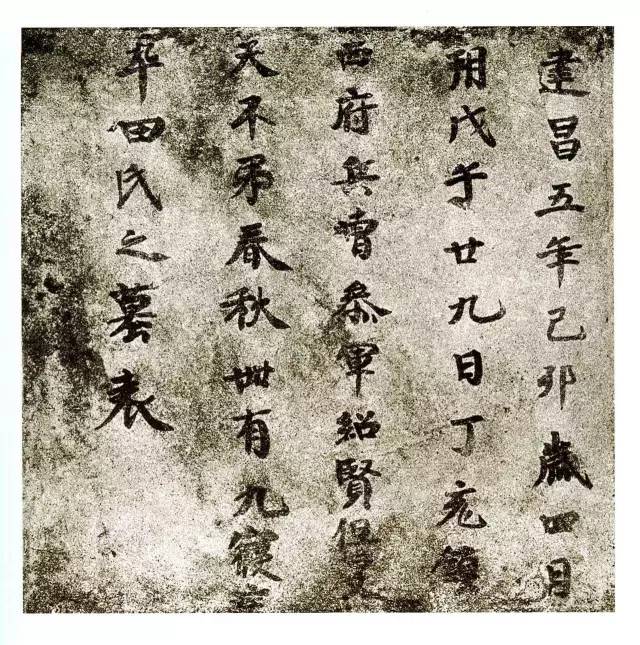 建昌五年己卯歲四月
朔戊午廿九日丁亥鎮
西府兵曹叅軍紹賢但
天不弔春秋卌有九寢
卒田氏之墓表